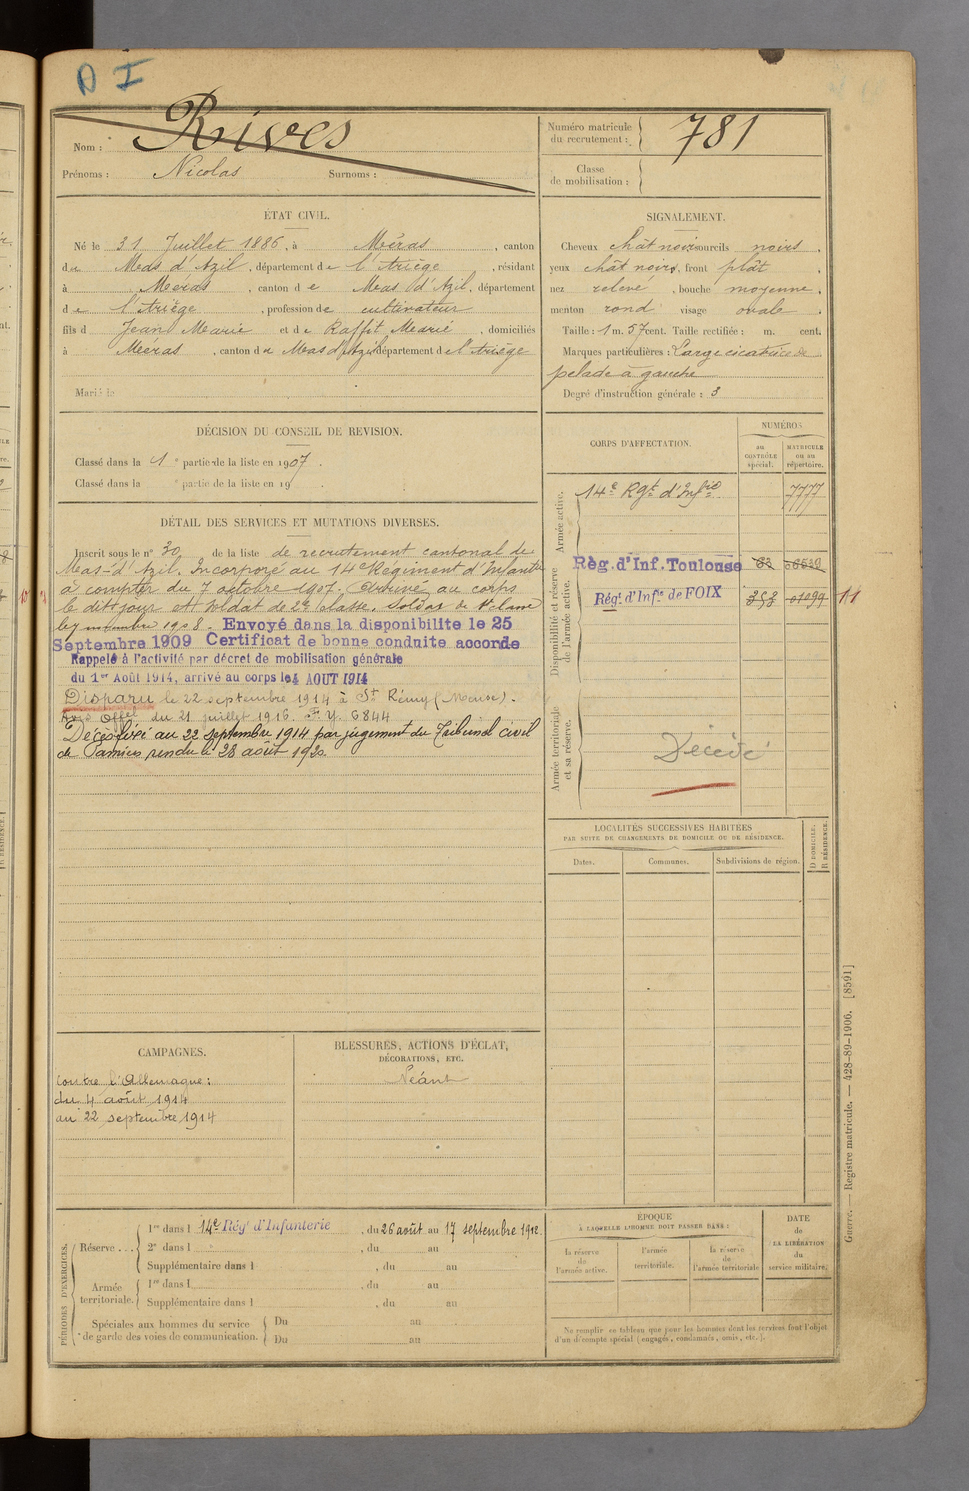 D I
Nom : Rives
Prénoms : Nicolas Surnoms :
Numéro matricule du recrutement : 781
Classe de mobilisation :
ÉTAT CIVIL.
Né le 31 Juillet 1886, à Méras, canton
du Mas d'Azil, département de l'Ariège, résidant
à Méras, canton de Mas d'Azil, département
de l'Ariège, profession de cultivateur
fils d Jean Marie et de Raffit Marie, domiciliés
à Méras, canton du Mas d'Azil département de l'Ariège
Marié le
SIGNALEMENT.
Cheveux chât noirs sourcils noirs.
yeux chât noirs, front plât,
nez relevé, bouche moyenne.
menton rond visage ovale.
Taille : 1 m. 57 cent. Taille rectifiée : m. cent.
Marques particulières : Large cicatrice de
pelade à gauche
Degré d'instruction générale : 3
DÉCISION DU CONSEIL DE REVISION.
Classé dans la 1e partie de la liste en 1907.
Classé dans la e partie de la liste en 19
CORPS D'AFFECTATION.
NUMÉROS
au CONTRÔLE spécial.
MATRICULE ou au répertoire.
Armée active.
14e Rgt d'Infrie 7777
Disponibilité et réserve de l'armée active.
Rég. d'Inf. Toulouse
Régt d'Infie de FOIX 353 01099 11
Armée territoriale et sa réserve.
Décédé
DÉTAIL DES SERVICES ET MUTATIONS DIVERSES.
Inscrit sous le n° 30 de la liste de recrutement cantonal de
Mas-d'Azil. Incorporé au 14e Régiment d'Infanterie
à compter du 7 octobre 1907. Arrivé au corps
le dit jour et soldat de 2e classe. Soldat de 1e classe
le 7 novembre 1908. Envoyé dans la disponibilite le 25
Septembre 1909 Certificat de bonne conduite accorde
Rappelé à l'activité par décret de mobilisation générale
du 1er Août 1914, arrivé au corps le 4 AOUT 1914
Disparu le 22 septembre 1914 à St Rémy (Meuse).
Avis Offel du 21 juillet 1916. F.Y. 6844
Décès fixé au 22 septembre 1914 par jugement du Tribunal civil
de Pamiers rendu le 28 août 1920.
LOCALITÉS SUCCESSIVES HABITÉES
PAR SUITE DE CHANGEMENTS DE DOMICILE OU DE RÉSIDENCE.
Dates. Communes. Subdivisions de région. D DOMICILE. R RÉSIDENCE.
CAMPAGNES.
Contre l'Allemagne :
du 4 août 1914
au 22 septembre 1914
BLESSURES, ACTIONS D'ÉCLAT,
DÉCORATIONS, ETC.
Néant
PÉRIODES D'EXERCICES.
Réserve ... 1re dans l 14e Régt d'Infanterie, du 26 août au 17 septembre 1912
2e dans l , du au
Supplémentaire dans l , du au
Armée territoriale. 1re dans l , du au
Supplémentaire dans l , du au
Spéciales aux hommes du service Du au
de garde des voies de communication. Du au
ÉPOQUE
À LAQUELLE L'HOMME DOIT PASSER DANS :
la réserve de l'armée active.
l'armée territoriale.
la réserve de l'armée territoriale
DATE de LA LIBÉRATION du service militaire.
Ne remplir ce tableau que pour les hommes dont les services font l'objet
d'un décompte spécial (engagés, condamnés, omis, etc.).
Guerre. — Registre matricule. — 428-89-1906. [8591]